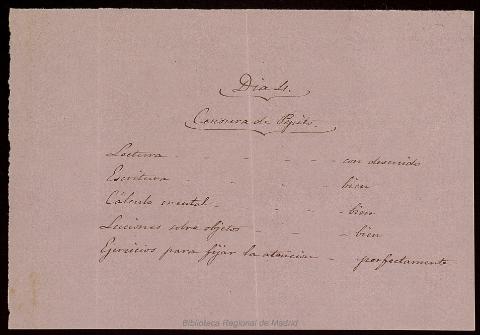 Dia 4.
Censura de Pepito.
Lectura - - - - - con descuido
Escritura - - - - - bien
Cálculo mental - - - - - bien
Lecciones sobre objetos - - - - bien
Ejercicios para fijar la atencion - perfectamente
Biblioteca Regional de Madrid